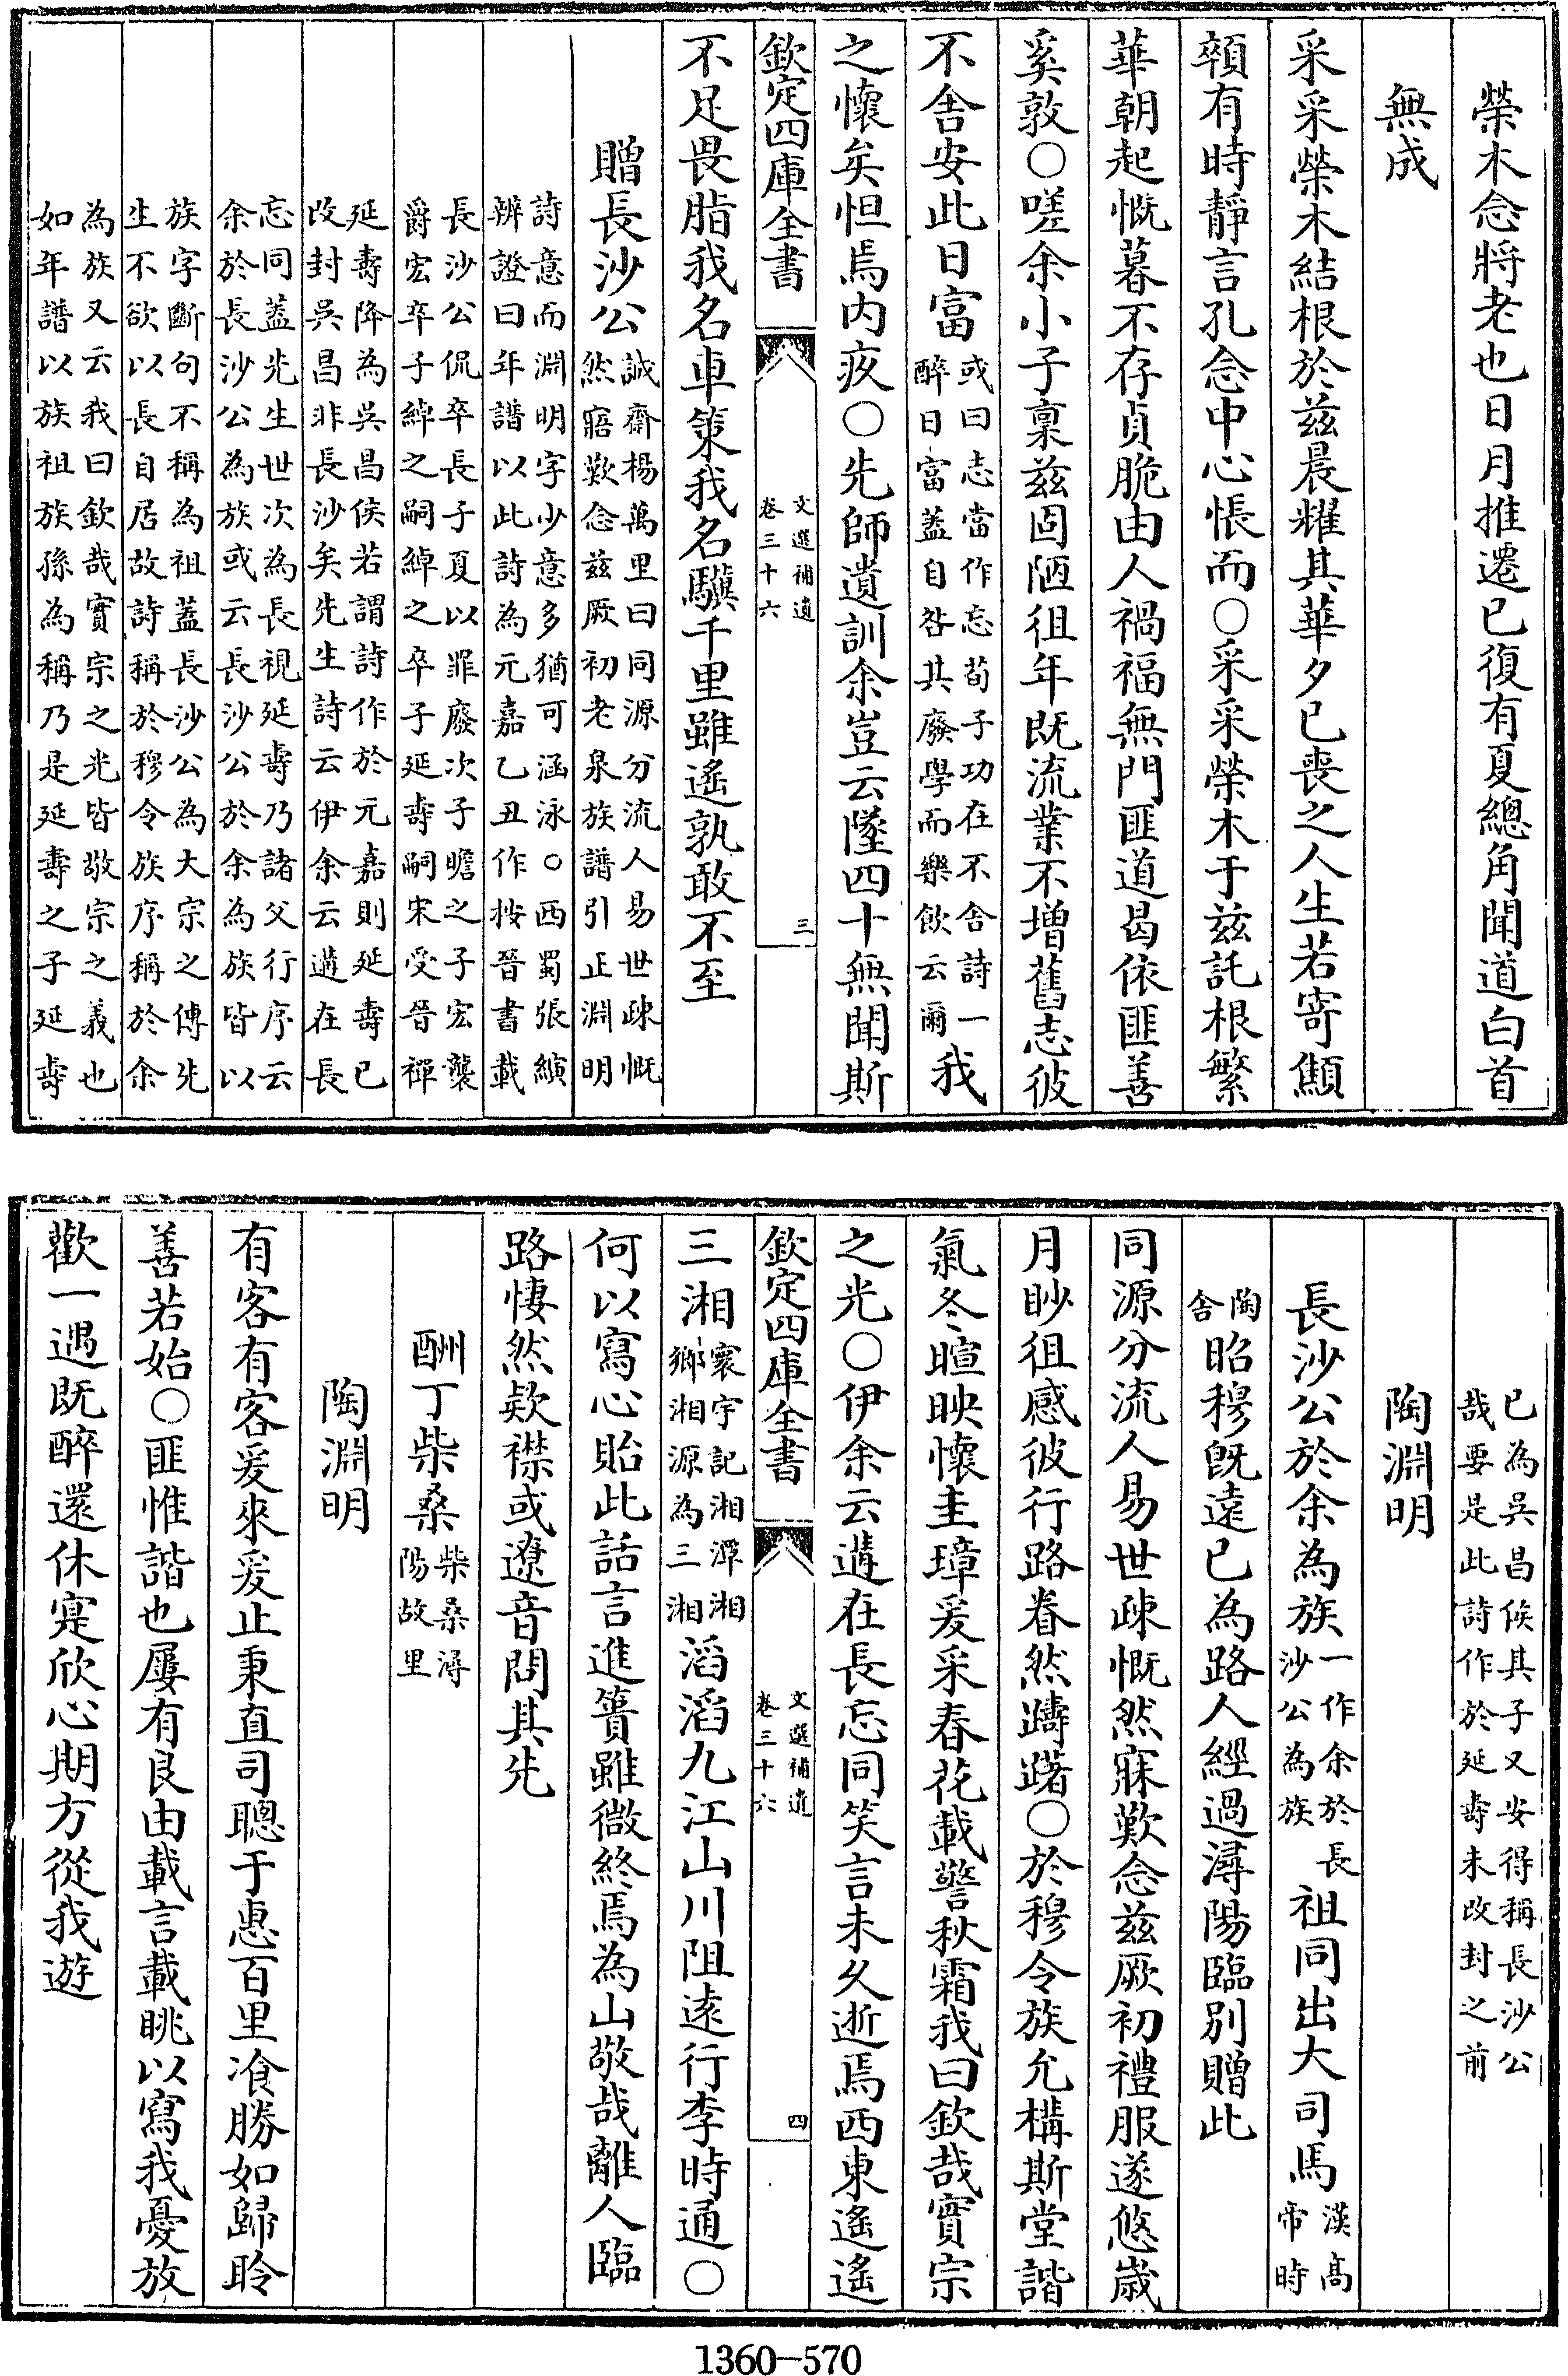 榮木念將老也日月推遷已復有夏總角聞道白首
無成
采采榮木結根於兹晨耀其華夕已喪之人生若寄顦
顇有時靜言孔念中心悵而○采采榮木于兹託根繁
華朝起慨暮不存貞脆由人禍福無門匪道曷依匪善
奚敦○嗟余小子稟兹固陋徂年既流業不增舊志彼
不舍安此日富
或曰志當作忘荀子功在不舍詩一
醉日富蓋自咎其廢學而樂飲云爾
我
之懷矣怛焉内疚○先師遺訓余豈云墜四十無聞斯
欽定四庫全書
文選補遺
卷三十六
三
不足畏脂我名車策我名驥千里雖遙孰敢不至
贈長沙公
誠齋楊萬里曰同源分流人易世疎慨
然寤歎念兹厥初老泉族譜引正淵明
詩意而淵明字少意多猶可涵泳○西蜀張縯
辨證曰年譜以此詩為元嘉乙丑作按晉書載
長沙公侃卒長子夏以罪廢次子瞻之子宏襲
爵宏卒子綽之嗣綽之卒子延壽嗣宋受晉禪
延壽降為吳昌侯若謂詩作於元嘉則延壽已
改封吳昌非長沙矣先生詩云伊余云遘在長
忘同蓋先生世次為長視延壽乃諸父行序云
余於長沙公為族或云長沙公於余為族皆以
族字斷句不稱為祖蓋長沙公為大宗之傳先
生不欲以長自居故詩稱於穆令族序稱於余
為族又云我曰欽哉實宗之光皆敬宗之義也
如年譜以族祖族孫為稱乃是延壽之子延壽
已為吳昌侯其子又安得稱長沙公
哉要是此詩作於延壽未改封之前
陶淵明
長沙公於余為族
一作余於長
沙公為族
祖同出大司馬
漢高
帝時
陶
舍
昭穆既遠已為路人經過潯陽臨别贈此
同源分流人易世疎慨然寐歎念兹厥初禮服遂悠歲
月眇徂感彼行路眷然躊躇○於穆令族允構斯堂諧
氣冬暄映懷圭璋爰采春花載警秋霜我曰欽哉實宗
之光○伊余云遘在長忘同笑言未久逝焉西東遙遙
欽定四庫全書
文選補遺
卷三十六
四
三湘
寰宇記湘潭湘
鄉湘源為三湘
滔滔九江山川阻遠行李時通○
何以寫心貽此話言進簣雖微終焉為山敬哉離人臨
路悽然款襟或遼音問其先
酬丁柴桑
柴桑潯
陽故里
陶淵明
有客有客爰來爰止秉直司聰于惠百里飡勝如歸聆
善若始○匪惟諧也屢有良由載言載眺以寫我憂放
歡一遇既醉還休寔欣心期方從我遊
1360-570